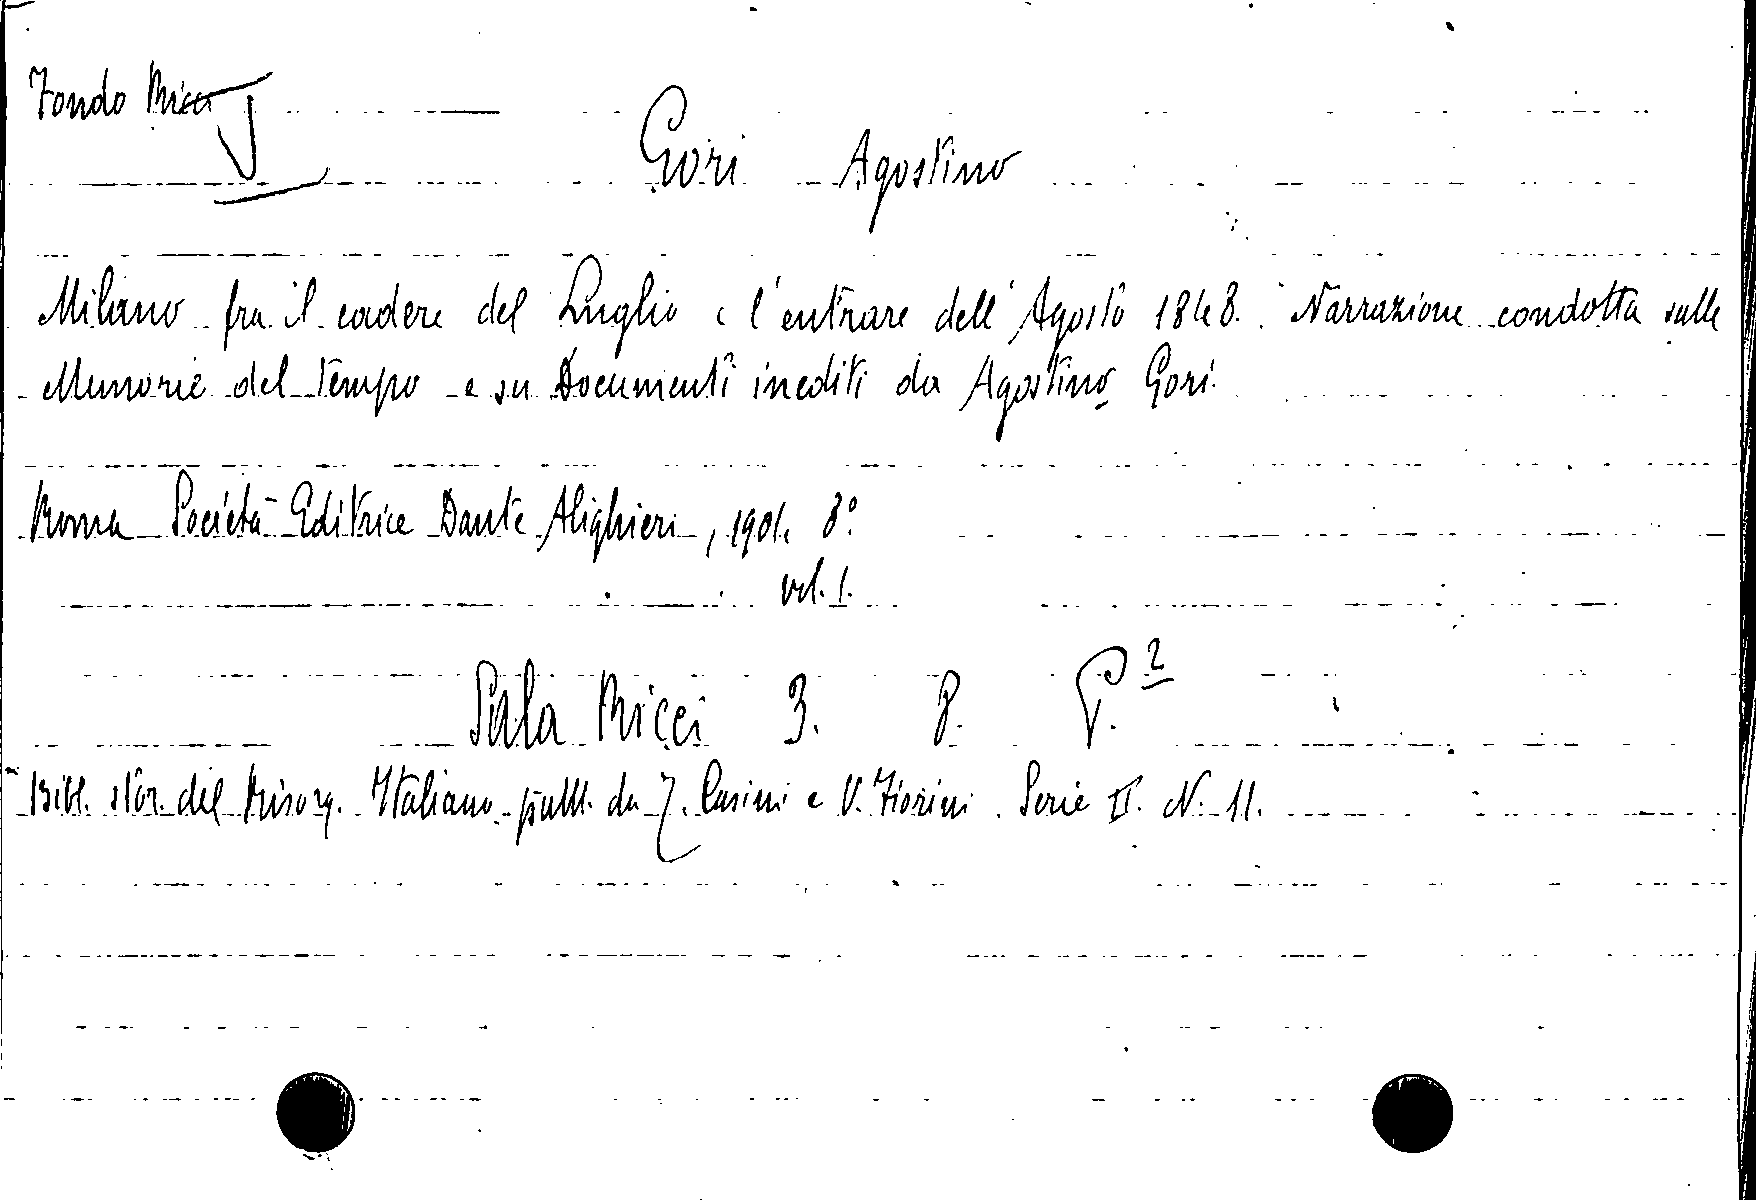 Fondo Ricci
Gori Agostino
Milano fra il cadere del Luglio e l'entrare dell'Agosto 1848. Narrazione condotta sulle
Memorie del tempo e su Documenti inediti da Agostino Gori.
Roma Società Editrice Dante Alighieri, 1901. 8°.
vol. 1.
Sala Ricci 3. 8.
Bibl. stor. del Risorg. Italiano pubbl. da T. Casini e V. Fiorini. Serie II. N. 11.